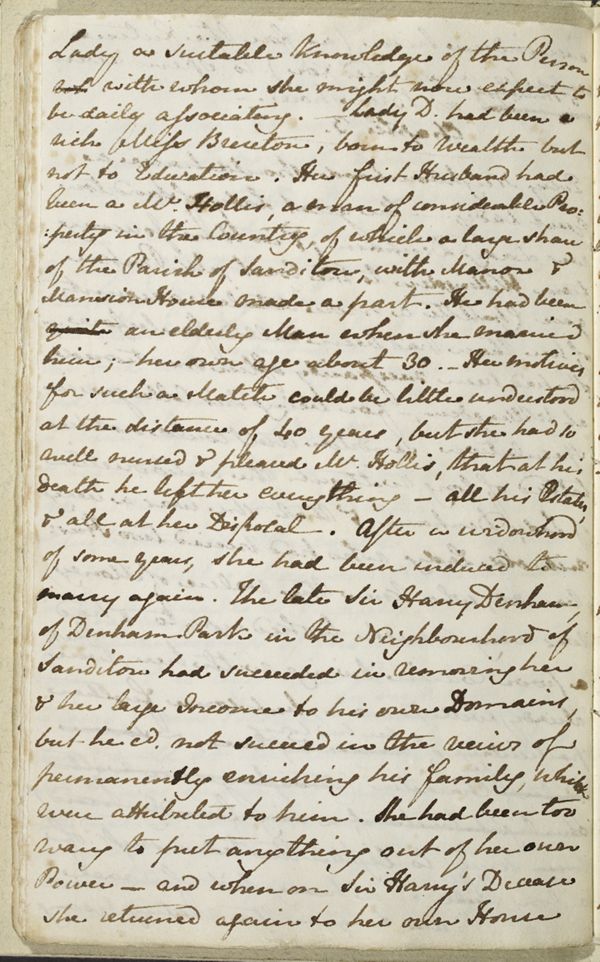 Lady a suitable Knowledge of the Person
with whom she might now expect to
be daily associating. — Lady D. had been a
rich Miss Brereton, born to Wealth but
not to Education. Her first Husband had
been a Mr. Hollis, a man of considerable Pro:
:perty in the Country, of which a large share
of the Parish of Sanditon, with Manor &
Mansion House made a part. He had been
quite an elderly Man when she married
him; – her own age about 30. – Her motives
for such a Match could be little understood
at the distance of 40 years, but she had so
well nursed & pleased Mr. Hollis, that at his
death he left her everything – all his Estates,
& all at her Disposal. After a widowhood
of some years, she had been induced to
marry again. The late Sir Harry Denham,
of Denham Park in the Neighbourhood of
Sanditon had succeeded in removing her
& her large Income to his own Domains,
but he cd. not succeed in the veiws of
permanently enriching his family, which
were attributed to him. She had been too
wary to put anything out of her own
Power – and when on Sir Harry's Decease
she returned again to her own House